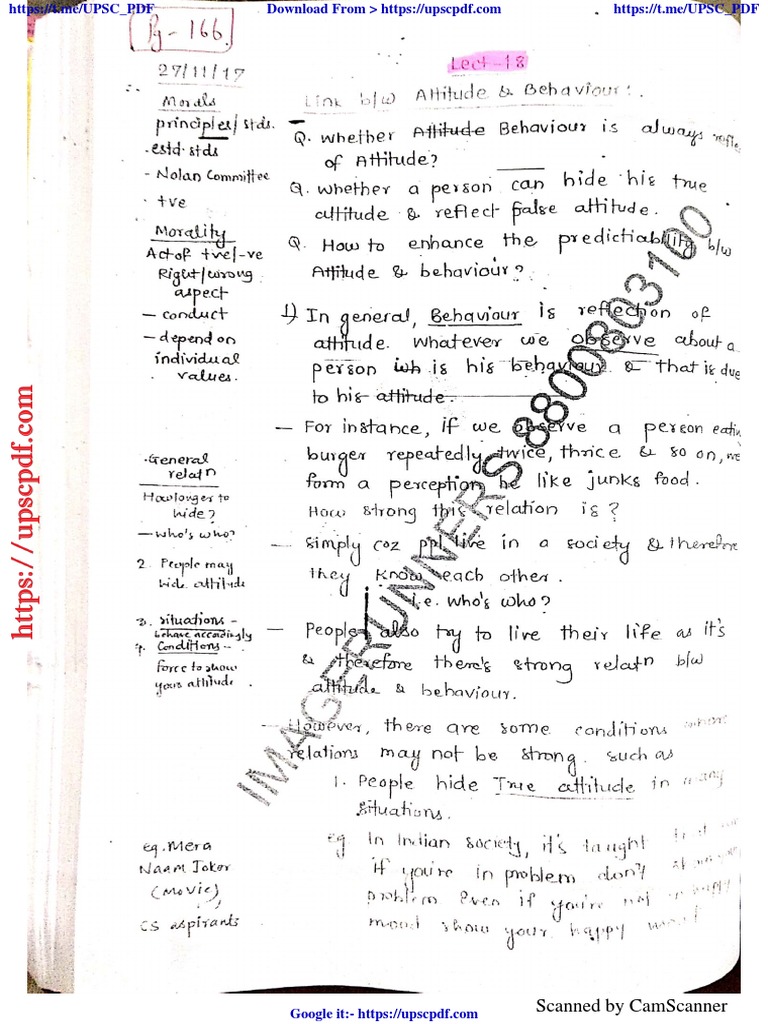 https://t.me/UPSC_PDF
Download From > https://upscpdf.com
https://t.me/UPSC_PDF
Pg-166.
27/11/17
Lect-18
Morals
principles/stds.
. estd. stds
- Nolan Committee
. +ve
Morality
Act of +ve/-ve
Right/wrong
aspect
- conduct
- depend on
individual
values.
.General
relatn
How longer to
hide?
- who's who?
2. People may
hide attitude
3. situations -
behave accordingly
4. Conditions -
force to show
your attitude
eg. Mera
Naam Joker
(Movie)
CS aspirants
Link b/w Attitude & Behaviour:
Q. whether Attitude Behaviour is always
of Attitude?
Q. whether a person can hide his true
attitude & reflect false attitude.
Q. How to enhance the predictiability b/w
Attitude & behaviour?
1) In general, Behaviour is reflection of
attitude. whatever we observe about a
person is his behaviour & that is due
to his attitude.
- For instance, if we observe a person
burger repeatedly twice, thrice & so on, we
form a perception he like junks food.
How strong this relation is?
- Simply coz ppl live in a society & therefore
they know each other.
i.e. who's who?
- People also try to live their life as it's
& therefore there's strong relatn b/w
attitude & behaviour.
- However, there are some conditions where
relations may not be strong. such as
1. People hide True attitude in many
situations.
eg In Indian society, it's taught that
if you're in problem don't
problem Even if you're not in happy
mood show your happy mood
IIMAGERUNNERS 8800803100
https://upscpdf.com
Scanned by CamScanner
Google it:- https://upscpdf.com